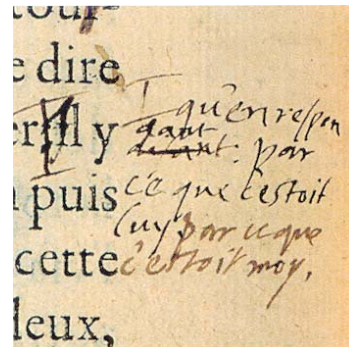 tour-
e dire
er il y
puis
cette
deux,
qu'en respon
dant
. par
ce que c'estoit
luy, par ce que
c'estoit moy,